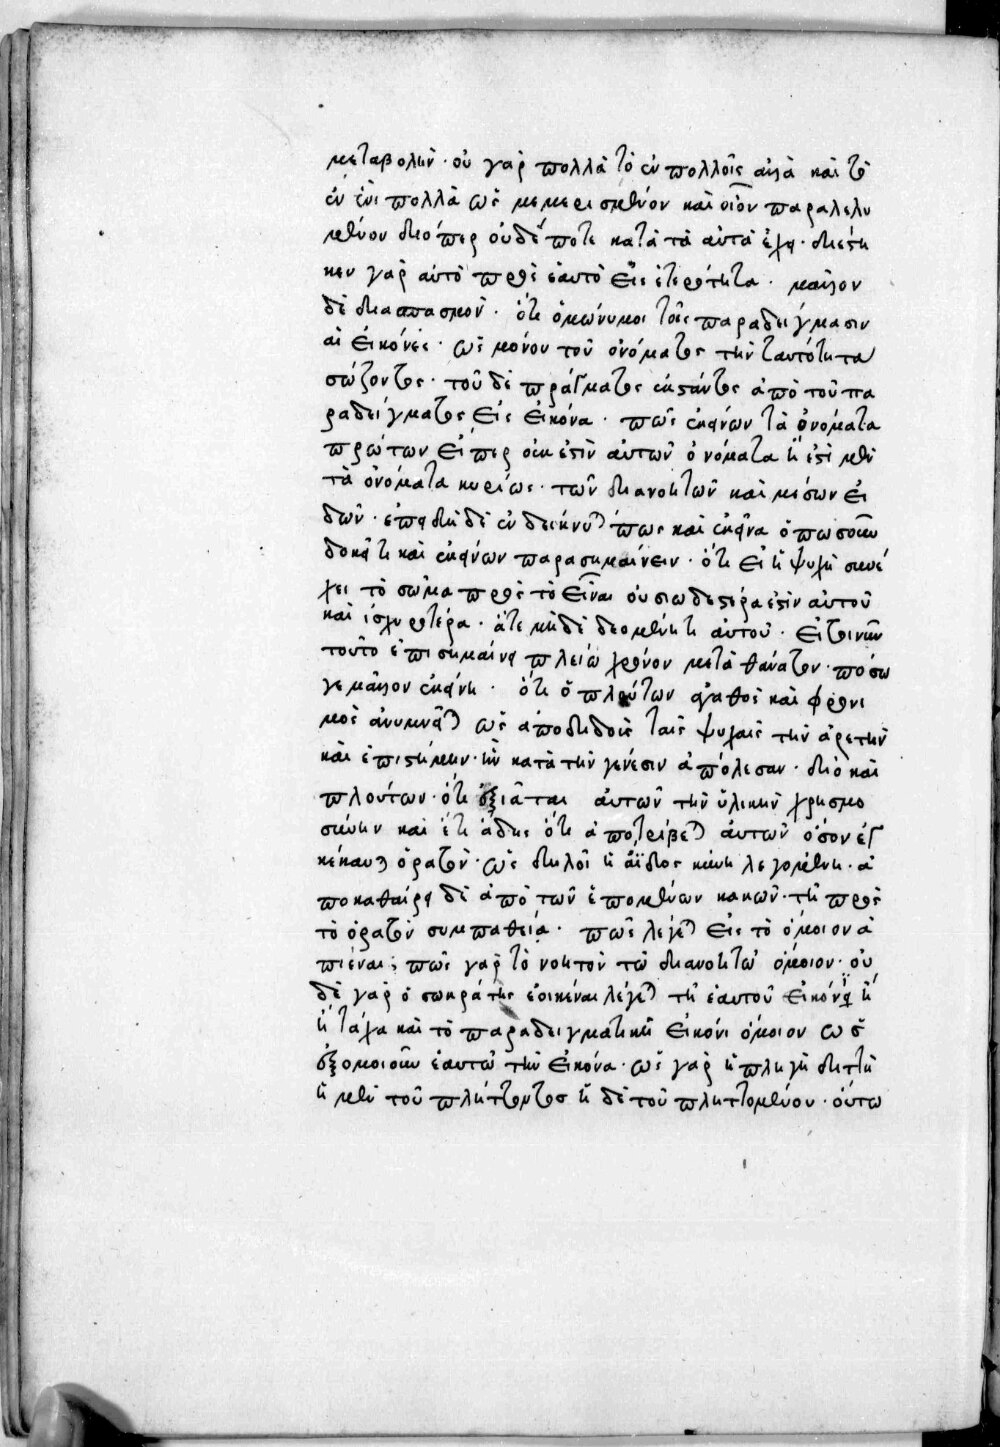 μεταβολήν · οὐ γὰρ πολλὰ τὸ ἐν πολλοῖς ἀλλὰ καὶ τὸ
ἐν ἑνὶ πολλὰ ὡς μεμερισμένον καὶ οἷον παραλελυ
μένον διόπερ οὐδέποτε κατὰ τὰ αὐτὰ ἔχει · διέστη
κεν γὰρ αὐτὸ πρὸς ἑαυτὸ εἰς ἑτερότητα · μᾶλλον
δὲ διασπασμόν · ὅτι ὁμώνυμοι τοῖς παραδείγμασιν
αἱ εἰκόνες · ὡς μόνον τοῦ ὀνόματος τὴν ταυτότητα
σώζοντος · τοῦ δὲ πράγματος ἐκστάντος ἀπὸ τοῦ πα
ραδείγματος εἰς εἰκόνα · πῶς ἐκείνων τὰ ὀνόματα
πρώτων εἴπερ οὐκ ἔστιν αὐτῶν ὀνόματα ἢ ἔστι μὲν
τὰ ὀνόματα κυρίως · τῶν διανοητῶν καὶ μέσων εἰ
δῶν · ἐπειδὴ δὲ ἐνδείκνυται πως καὶ ἐκεῖνα ὁπωσοῦν
δοκεῖ τι καὶ ἐκείνων παρασημαίνειν · ὅτι εἰ ἡ ψυχὴ συνέ
χει τὸ σῶμα πρὸς τὸ εἶναι οὐσιωδεστέρα ἐστὶν αὐτοῦ
καὶ ἰσχυροτέρα · ἅτε μηδὲ δεομένη τι αὐτοῦ · εἰ τοίνυν
τοῦτο ἐπισημαίνει πλείω χρόνον μετὰ θάνατον · πόσω
γε μᾶλλον ἐκείνη · ὅτι ὁ πλούτων ἀγαθὸς καὶ φρόνι
μος ἀνυμνεῖται ὡς ἀποδιδοὺς ταῖς ψυχαῖς τὴν ἀρετὴν
καὶ ἐπιστήμην · ἣν κατὰ τὴν γένεσιν ἀπόλεσαν · διὸ καὶ
πλούτων · ὅτι ἐξιᾶται αὐτῶν τὴν ὑλικὴν χρησμο
σύνην καὶ ἔτι ἅδης ὅτι ἀποτρίβεται αὐτῶν ὅσον ἐγ
κέκαυται ὁρατόν · ὡς δηλοῖ ἡ ἄϊδος κυνῆ λεγομένη · ἀ
ποκαθαίρει δὲ ἀπὸ τῶν ἑπομένων κακῶν · τῇ πρὸς
τὸ ὁρατὸν συμπαθείᾳ · πῶς λέγεται εἰς τὸ ὅμοιον ἀ
πιέναι ; πῶς γὰρ τὸ νοητὸν τῷ διανοητῷ ὅμοιον · οὐ
δὲ γὰρ ὁ σωκράτης ἐοικέναι λέγεται τῇ ἑαυτοῦ εἰκόνι ἢ
ἢ τάχα καὶ τὸ παραδειγματικὸν εἰκόνι ὅμοιον ὡς
ἐξομοιοῦν ἑαυτῷ τὴν εἰκόνα · ὡς γὰρ ἡ πληγὴ διττὴ
ἡ μὲν τοῦ πλήττοντος ἡ δὲ τοῦ πληττομένου · οὕτω